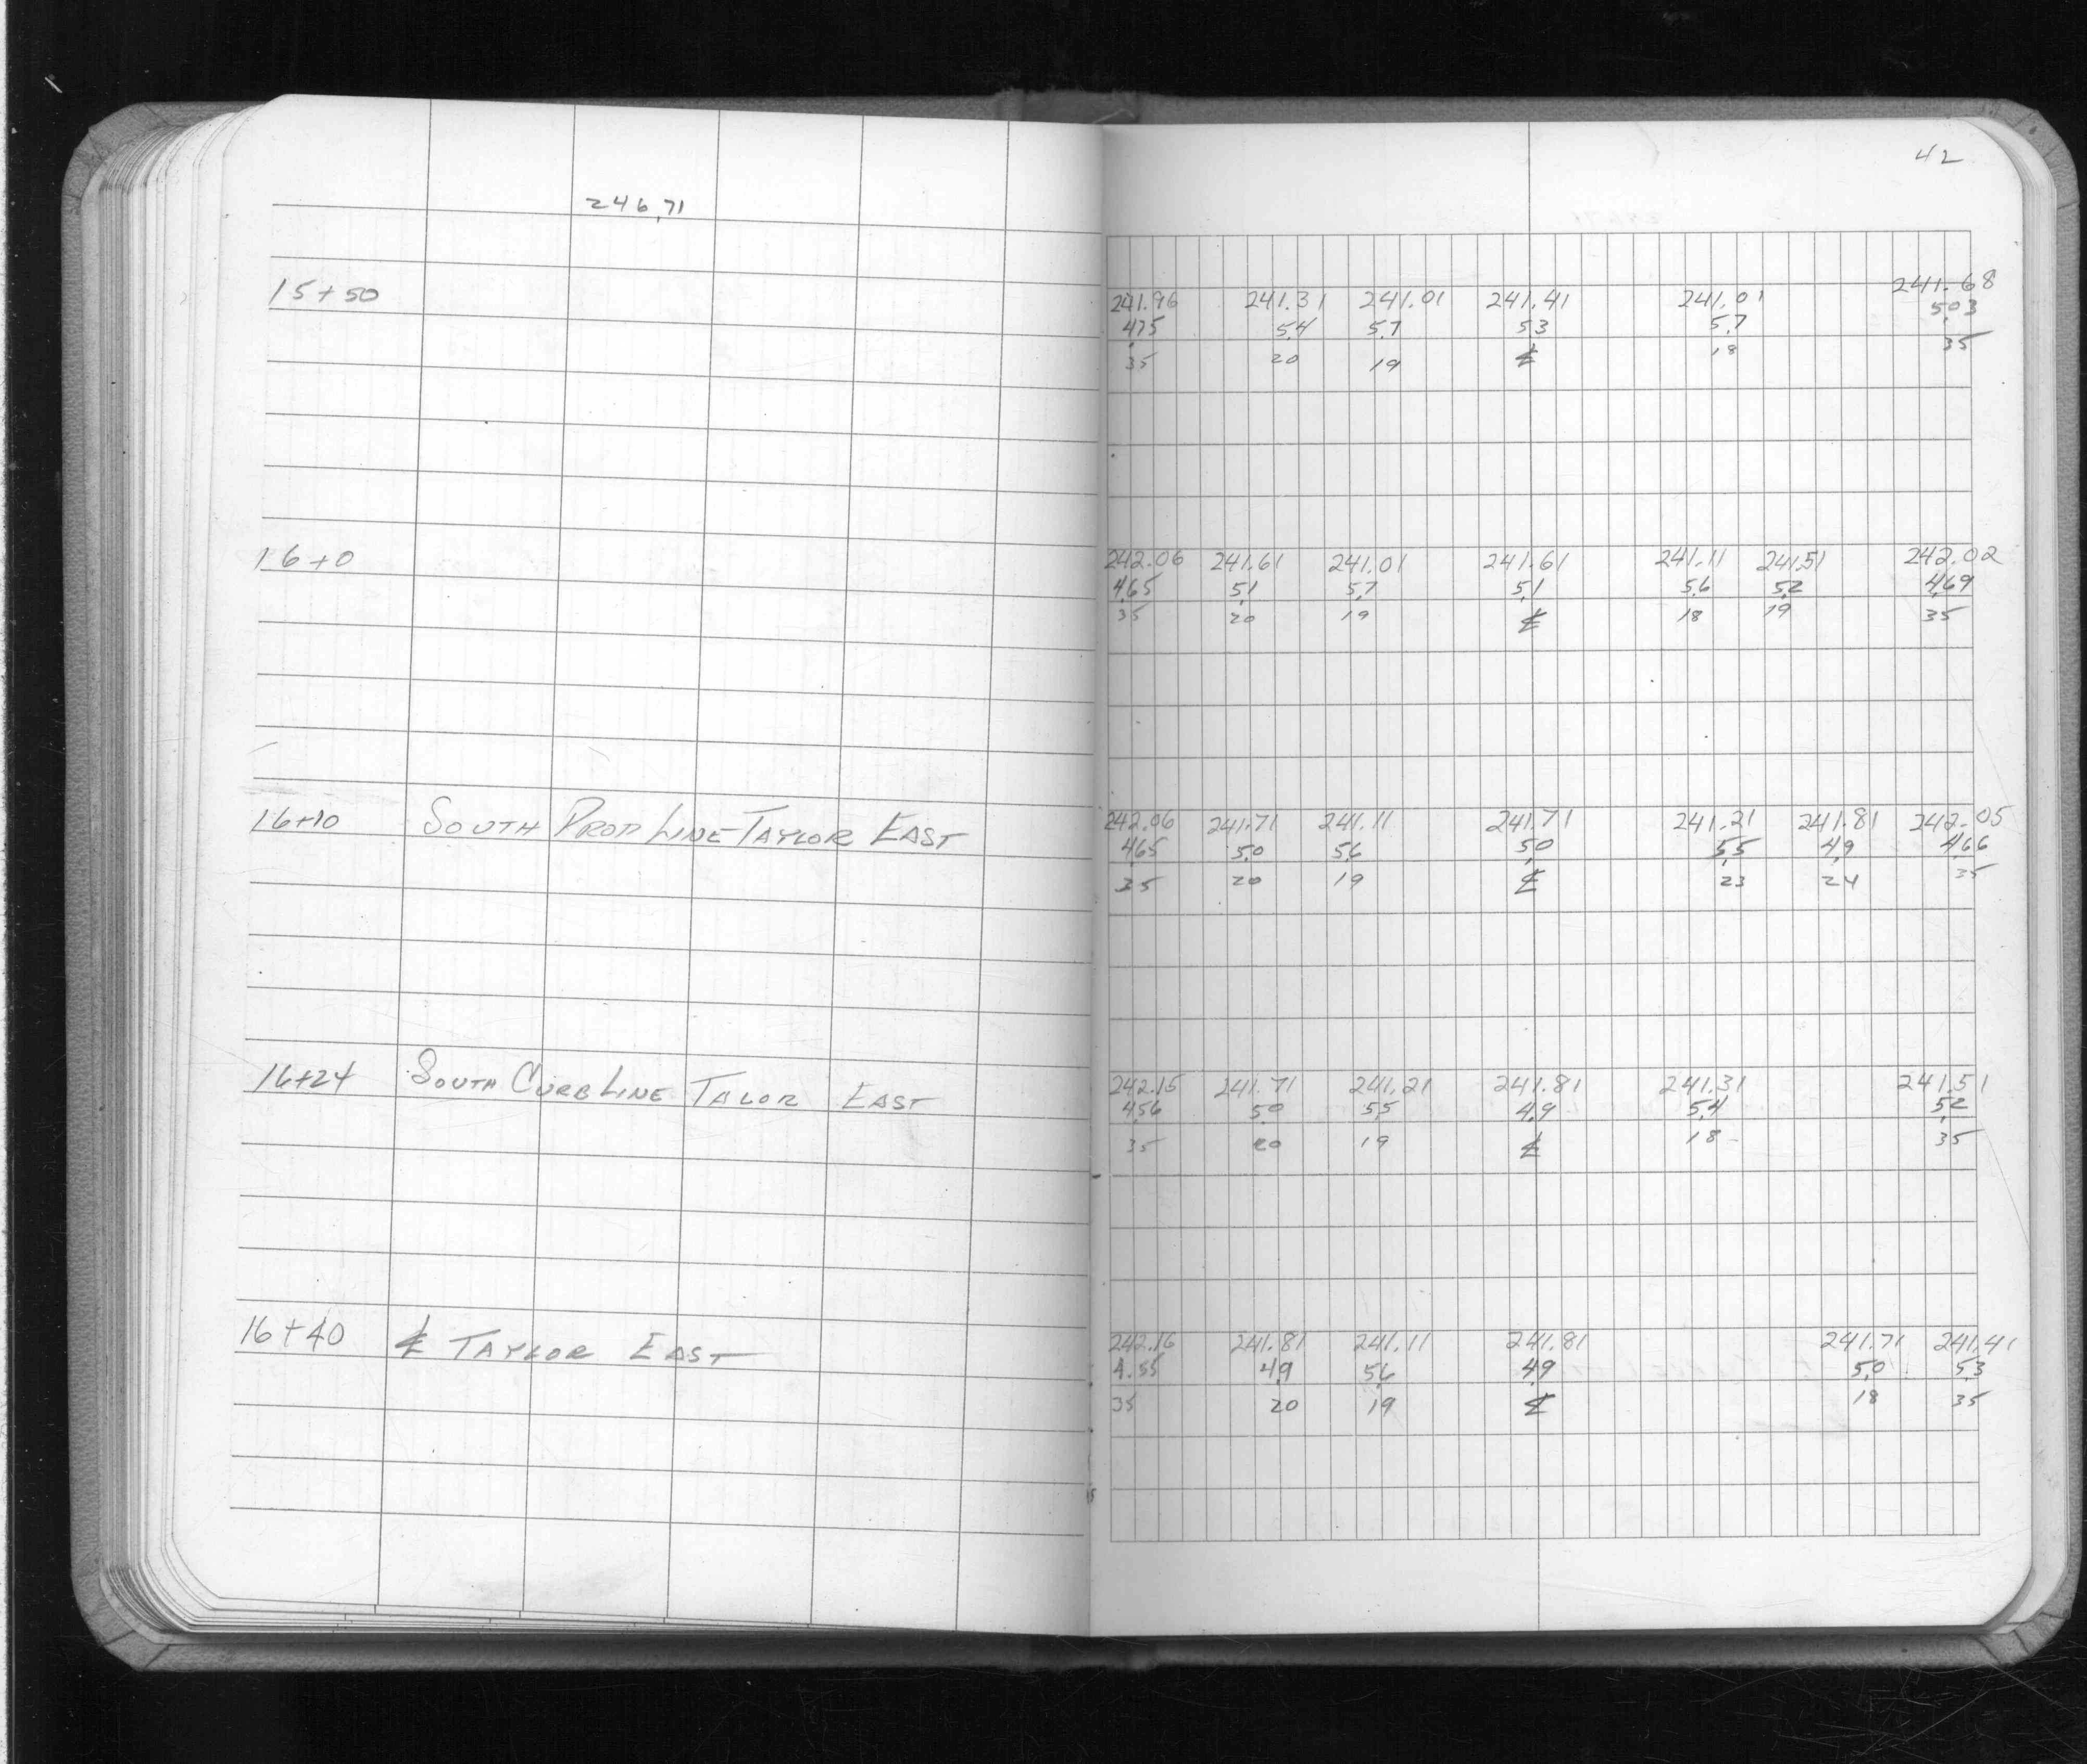 42
246.71
15+50 241.96 241.31 241.01 241.41 241.01 241.68
4.75 5.4 5.7 5.3 5.7 5.03
35 20 19 ℄ 18 35
16+0 242.06 241.61 241.01 241.61 241.11 241.51 242.02
4.65 5.1 5.7 5.1 5.6 5.2 4.69
35 20 19 ℄ 18 19 35
16+10 SOUTH PROP LINE TAYLOR EAST 242.06 241.71 241.11 241.71 241.21 241.81 242.05
4.65 5.0 5.6 5.0 5.5 4.9 4.66
35 20 19 ℄ 23 24 35
16+24 SOUTH CURB LINE TALOR EAST 242.15 241.71 241.21 241.81 241.31 241.51
4.56 5.0 5.5 4.9 5.4 5.2
35 20 19 ℄ 18 35
16+40 ℄ TAYLOR EAST 242.16 241.81 241.11 241.81 241.71 241.41
4.55 4.9 5.6 4.9 5.0 5.3
35 20 19 ℄ 18 35